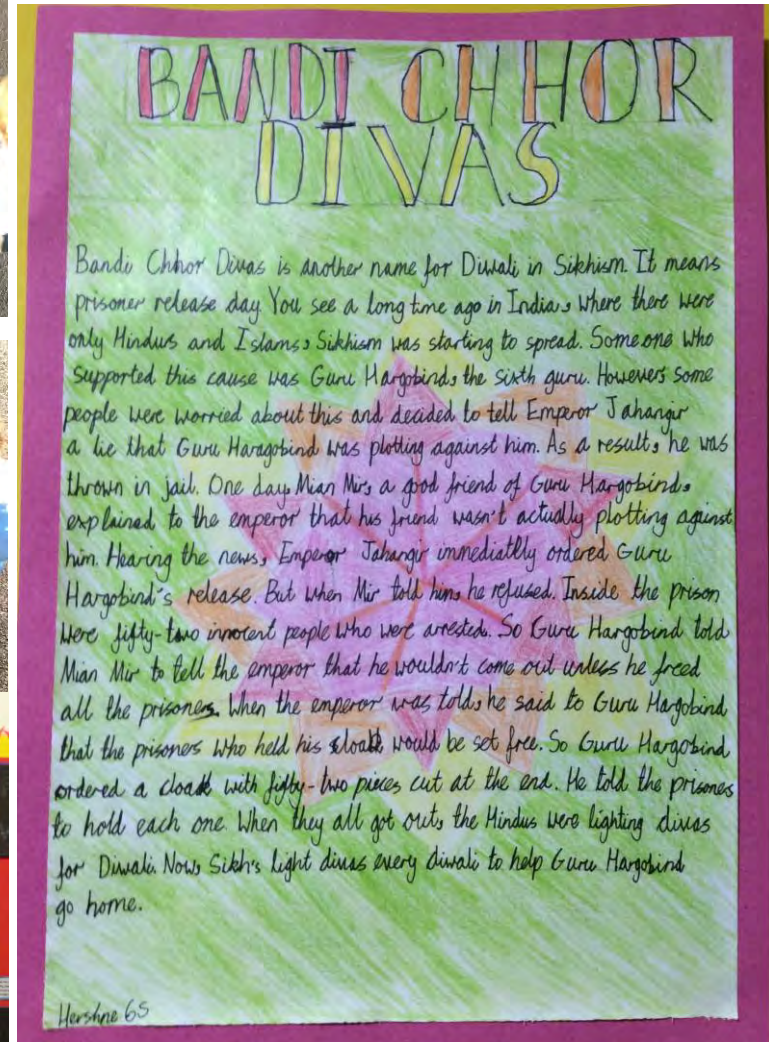 BANDI CHHOR
DIVAS
Bandi Chhor Divas is another name for Diwali in Sikhism. It means
prisoner release day. You see a long time ago in India, where there were
only Hindus and Islams, Sikhism was starting to spread. Someone who
supported this cause was Guru Hargobind, the sixth guru. However, some
people were worried about this and decided to tell Emperor Jahangir
a lie that Guru Haragobind was plotting against him. As a result, he was
thrown in jail. One day, Mian Mir, a good friend of Guru Hargobind,
explained to the emperor that his friend wasn't actually plotting against
him. Hearing the news, Emperor Jahangir immediatlly ordered Guru
Hargobind's release. But when Mir told him, he refused. Inside the prison
were fifty-two innocent people who were arrested. So Guru Hargobind told
Mian Mir to tell the emperor that he wouldn't come out unless he freed
all the prisoners. When the emperor was told, he said to Guru Hargobind
that the prisoners who held his cloak would be set free. So Guru Hargobind
ordered a cloak with fifty-two pieces cut at the end. He told the prisoners
to hold each one. When they all got out, the Hindus were lighting divas
for Diwali. Now, Sikh's light divas every diwali to help Guru Hargobind
go home.
Hershne 6S